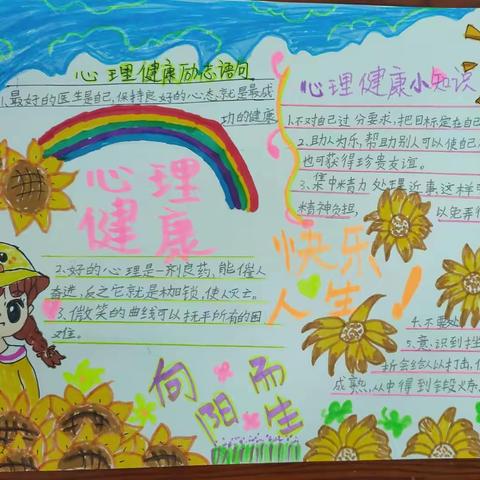 心理健康励志语句
1.最好的医生是自己,保持良好的心态,就是最成
功的健康
心理
健康
2.好的心理是一剂良药,能催人
奋进,反之它就是枷锁,使人灭亡。
3.微笑的曲线可以抚平所有的困
难。
向阳而生
心理健康小知识
1.不对自己过分要求,把目标定在自己
2.助人为乐,帮助别人可以使自己
也可获得珍贵友谊。
3.集中精力处理近事,这样可
精神负担,以免弄得
快乐
人生!
4.不要处
5.意识到挫
折会给人以打击,但
成熟,从中得到